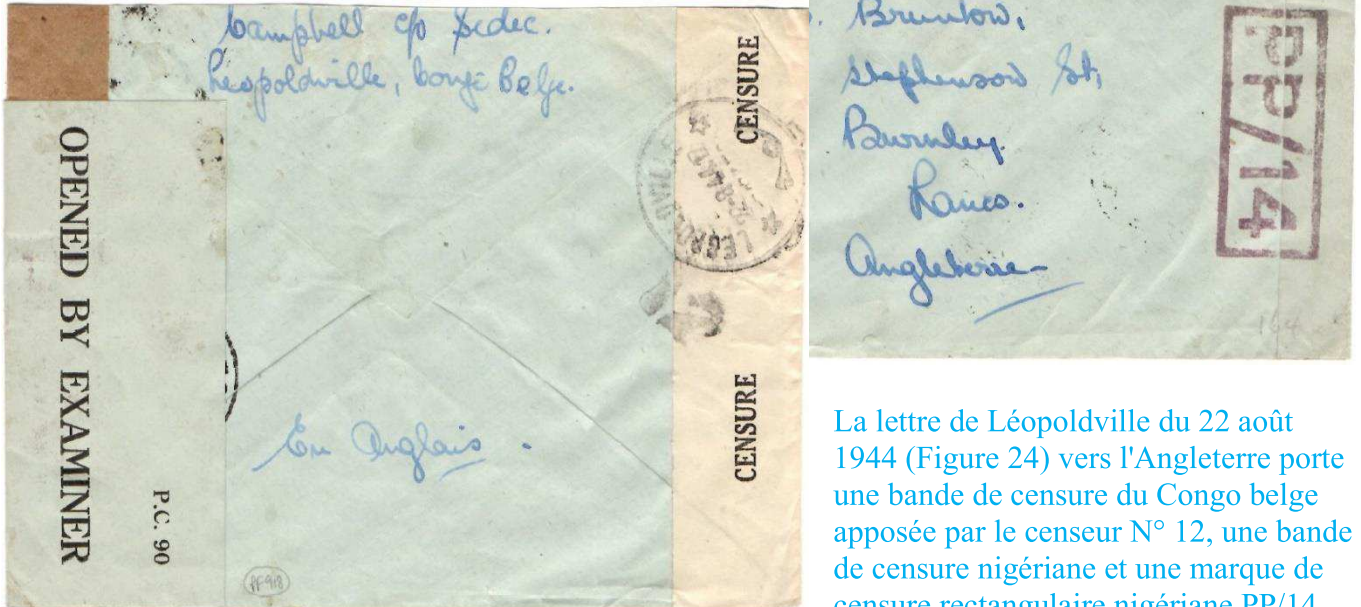 Campbell c/o Sedec.
Léopoldville, Congo Belge.
OPENED BY EXAMINER
P.C. 90
CENSURE
CENSURE
En Anglais.
PF918
Stephenson St,
Burnley
Lancs.
Angleterre
PP/14
164
La lettre de Léopoldville du 22 août
1944 (Figure 24) vers l'Angleterre porte
une bande de censure du Congo belge
apposée par le censeur N° 12, une bande
de censure nigériane et une marque de
censure rectangulaire nigériane PP/14